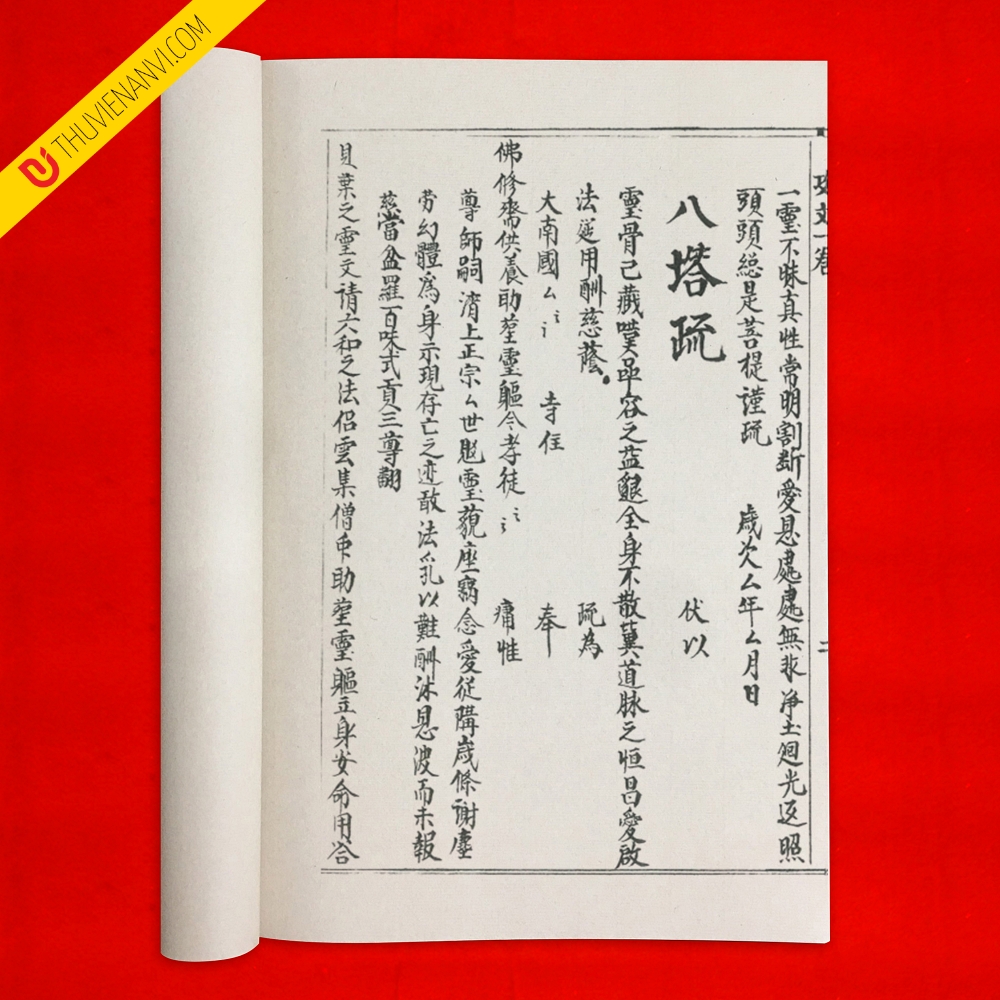 THUVIENANVI.COM
一靈不昧真性常明割断愛恩處處無非净土廻光返照
頭頭總是菩提謹疏 歲次厶年厶月日
八塔疏
伏以
靈骨己藏噗品容之益艱全身不散冀道脉之恒昌爰啟
法筵用酬慈蔭 疏為
大南國厶 寺住 奉
佛修齋供養助塟靈軀今孝徒 痛惟
尊師嗣濟上正宗厶世 靈 座竊念愛從 歲條謝塵
劳幻體為身示現存亡之迹敢法乳以難酬沐恩波而未報
兹當盆羅百味式貢三尊翻
貝葉之靈文請六和之法侣雲集僧 助塟靈軀立身安命用合